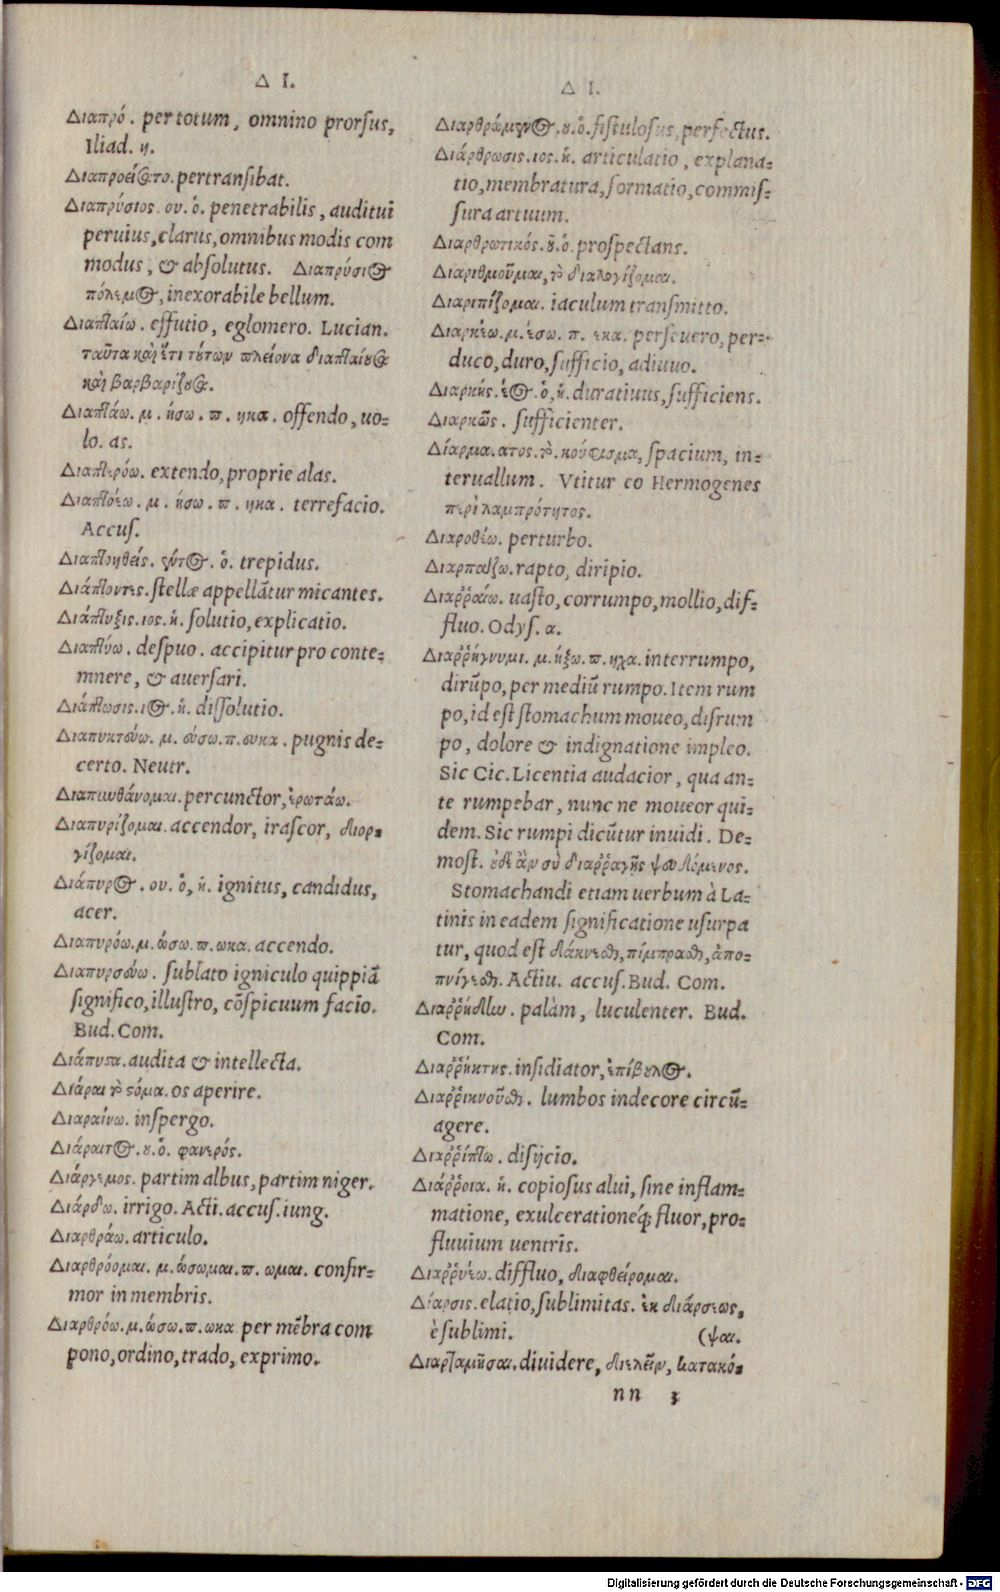 Δ I.
Διαπρό. per totum, omnino prorſus,
Iliad. η.
Διαπροείατο. pertranſibat.
Διαπρύσιος. ου. ὁ. penetrabilis, auditui
peruius, clarus, omnibus modis com
modus, & abſolutus. Διαπρύσιος
πόλεμος, inexorabile bellum.
Διαπταίω. effutio, eglomero. Lucian.
ταῦτα καὶ ἔτι τούτων πλείονα διαπταίουσα
καὶ βαρβαρίζουσα.
Διαπτάω. μ. ήσω. π. ηκα. offendo, uo-
lo. as.
Διαπτερόω. extendo, proprie alas.
Διαπτοέω. μ. ήσω. π. ηκα. terrefacio.
Accuſ.
Διαπτοηθείς. έντος. ὁ. trepidus.
Διάπτοντες. ſtellæ appellãtur micantes.
Διάπτυξις. ιος. ἡ. ſolutio, explicatio.
Διαπτύω. deſpuo. accipitur pro conte-
mnere, & auerſari.
Διάπτωσις. ιος. ἡ. diſſolutio.
Διαπυκτεύω. μ. εύσω. π. ευκα. pugnis de-
certo. Neutr.
Διαπυνθάνομαι. percunctor, ἐρωτάω.
Διαπυρίζομαι. accendor, iraſcor, διορ-
γίζομαι.
Διάπυρος. ου. ὁ, ἡ. ignitus, candidus,
acer.
Διαπυρόω. μ. ώσω. π. ωκα. accendo.
Διαπυρσεύω. ſublato igniculo quippiã
ſignifico, illuſtro, cõſpicuum facio.
Bud. Com.
Διάπυστα. audita & intellecta.
Διᾶραι τὸ στόμα. os aperire.
Διαραίνω. inſpergo.
Διάραιτος. ου. ὁ. φανερός.
Διάργεμος. partim albus, partim niger.
Διάρδω. irrigo. Acti. accuſ. iung.
Διαρθράω. articulo.
Διαρθρόομαι. μ. ώσωμαι. π. ωμαι. confir-
mor in membris.
Διαρθρόω. μ. ώσω. π. ωκα per mẽbra com
pono, ordino, trado, exprimo.
Δ I.
Διαρθρώμενος. ου. ὁ. fiſtuloſus, perfectus.
Διάρθρωσις. ιος. ἡ. articulatio, explana-
tio, membratura, formatio, commiſ-
ſura artuum.
Διαρθρωτικός. οῦ. ὁ. proſpectans.
Διαριθμοῦμαι, τὸ διαλογίζομαι.
Διαριπίζομαι. iaculum tranſmitto.
Διαρκέω. μ. έσω. π. εκα. perſeuero, per-
duco, duro, ſufficio, adiuuo.
Διαρκής. έος. ὁ, ἡ. duratiuus, ſufficiens.
Διαρκῶς. ſufficienter.
Δίαρμα. ατος. τὸ. κούφισμα, ſpacium, in-
teruallum. Vtitur eo Hermogenes
περὶ λαμπρότητος.
Διαροθέω. perturbo.
Διαρπάζω. rapto, diripio.
Διαῤῥαίω. uaſto, corrumpo, mollio, dif-
fluo. Odyſ. α.
Διαῤῥήγνυμι. μ. ήξω. π. ηχα. interrumpo,
dirũpo, per mediũ rumpo. Item rum
po, id eſt ſtomachum moueo, diſrum
po, dolore & indignatione impleo.
Sic Cic. Licentia audacior, qua an-
te rumpebar, nunc ne moueor qui-
dem. Sic rumpi dicũtur inuidi. De-
moſt. οὐδὲ ἂν σὺ διαῤῥαγῇς ψευδόμενος.
Stomachandi etiam uerbum à La-
tinis in eadem ſignificatione uſurpa
tur, quod eſt δάκνεσθαι, πίμπρασθαι, ἀπο-
πνίγεσθαι. Actiu. accuſ. Bud. Com.
Διαῤῥήδην. palàm, luculenter. Bud.
Com.
Διαῤῥήκτης. inſidiator, ἐπίβουλος.
Διαῤῥικνοῦσθαι. lumbos indecore circũ-
agere.
Διαῤῥίπτω. diſijcio.
Διάῤῥοια. ἡ. copioſus alui, ſine inflam-
matione, exulcerationeq́; fluor, pro-
fluuium uentris.
Διαῤῥυέω. diffluo, διαφθείρομαι.
Δίαρσις. elatio, ſublimitas. ἐκ διάρσεως,
è ſublimi. (ψαι.
Διαρταμῆσαι. diuidere, διελεῖν, κατακό-
nn 3
Digitalisierung gefördert durch die Deutsche Forschungsgemeinschaft - DFG